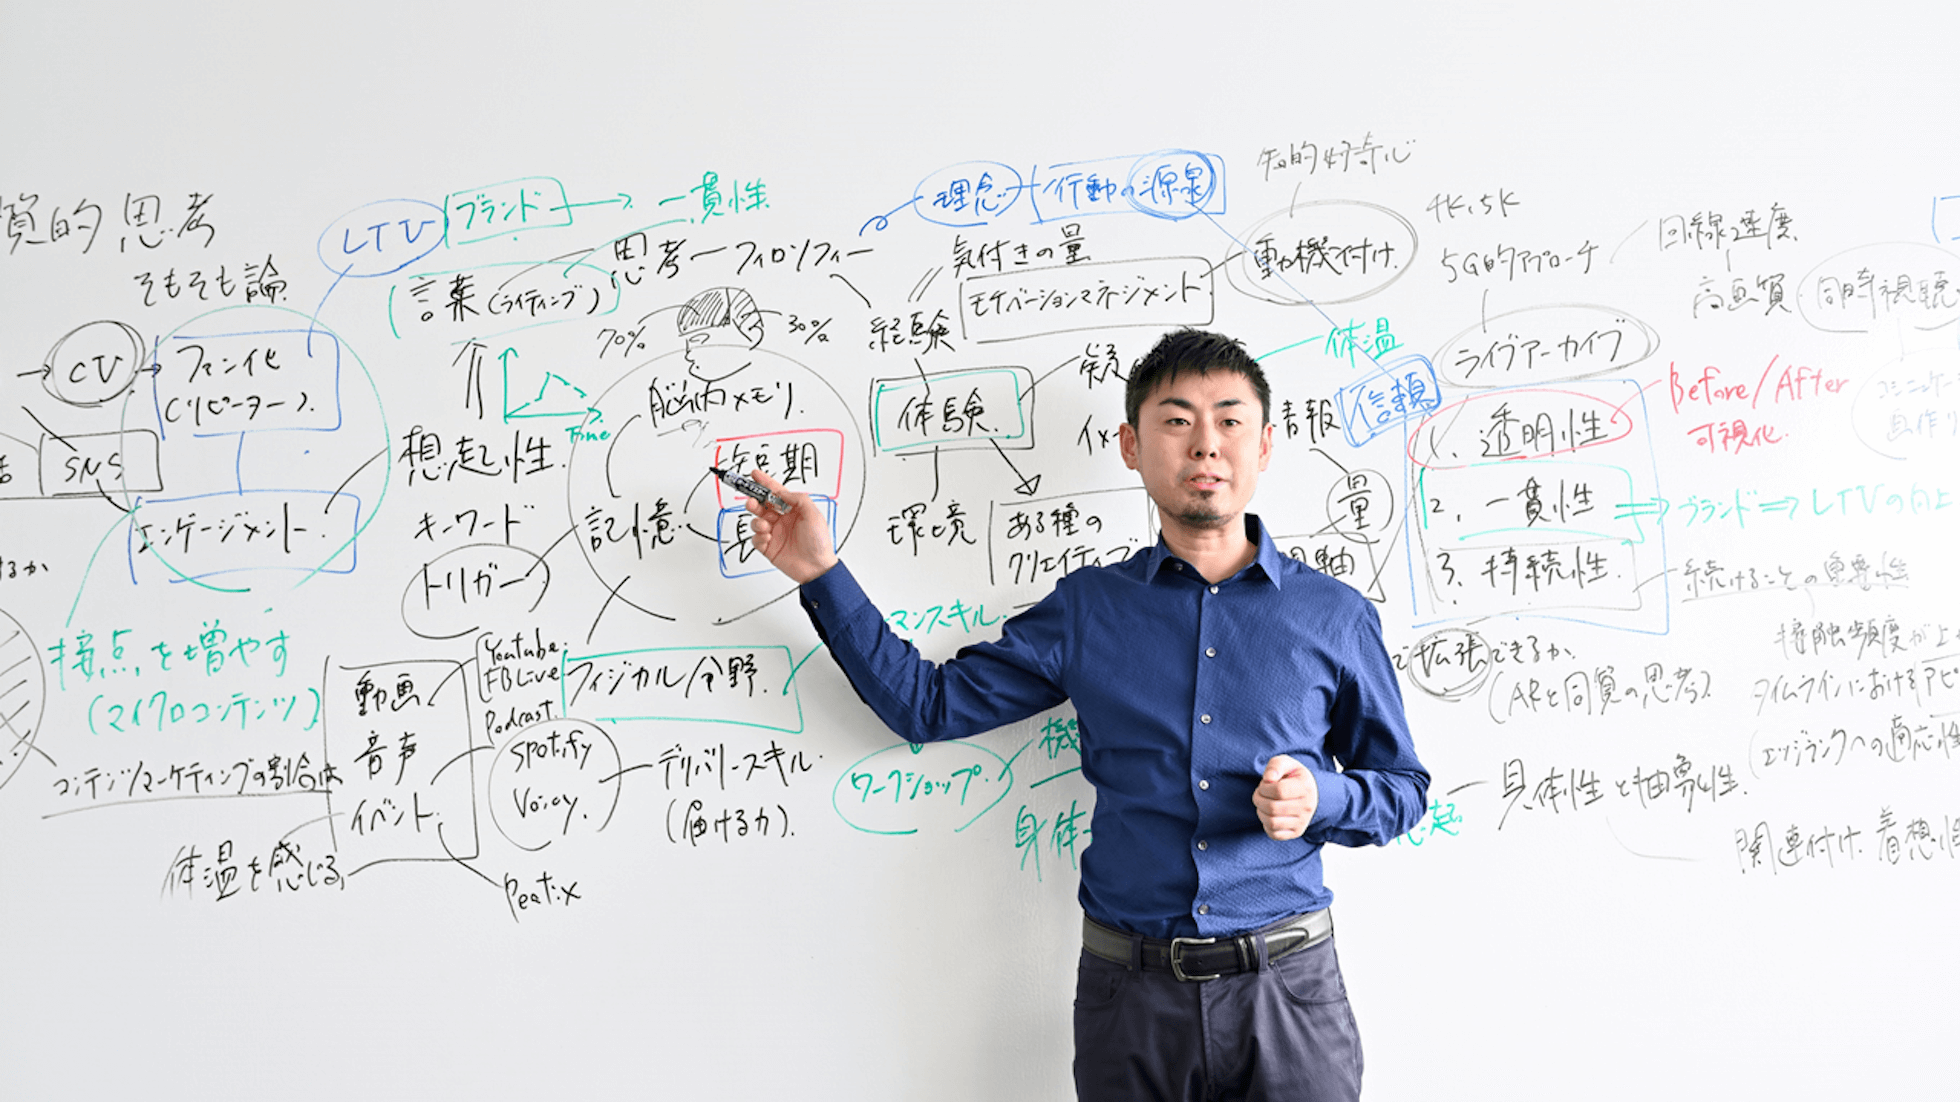 質的思考
そもそも論
CV
ファン化
(リピーター).
SNS
エンゲージメント.
接点を増やす
(マイクロコンテンツ)
コンテンツマーケティングの割合は
体温を感じる
LTV
ブランド
一貫性
言葉(ライティング)
Time
想起性.
キーワード
トリガー
動画
音声
イベント.
Youtube.
FBLive
Podcast.
Spotify
Voicy.
Peatix
思考ーフィロソフィー
70%
30%
脳内メモリ.
短期
記憶
フィジカル分野.
デリバリースキル.
(届ける力).
理念
行動の源泉
気付きの量
モチベーションマネジメント.
経験
体験.
環境
ある種の
クリエイティブ
マンスキル.
ワークショップ.
身体
知的好奇心
動機付け.
体温
信頼
情報
量
4K,5K
5G的アプローチ
回線速度.
高画質
同時視聴
ライブアーカイブ
1. 透明性
2. 一貫性
3. 持続性.
Before/After
可視化.
ブランド⇒LTVの向上
続けることの重要性
接触頻度が上
で拡張できるか.
(ARと同質の思考)
タイムラインにおけるアピ
(エッジランクへの適応性
具体性と抽象性.
関連付け.着想性